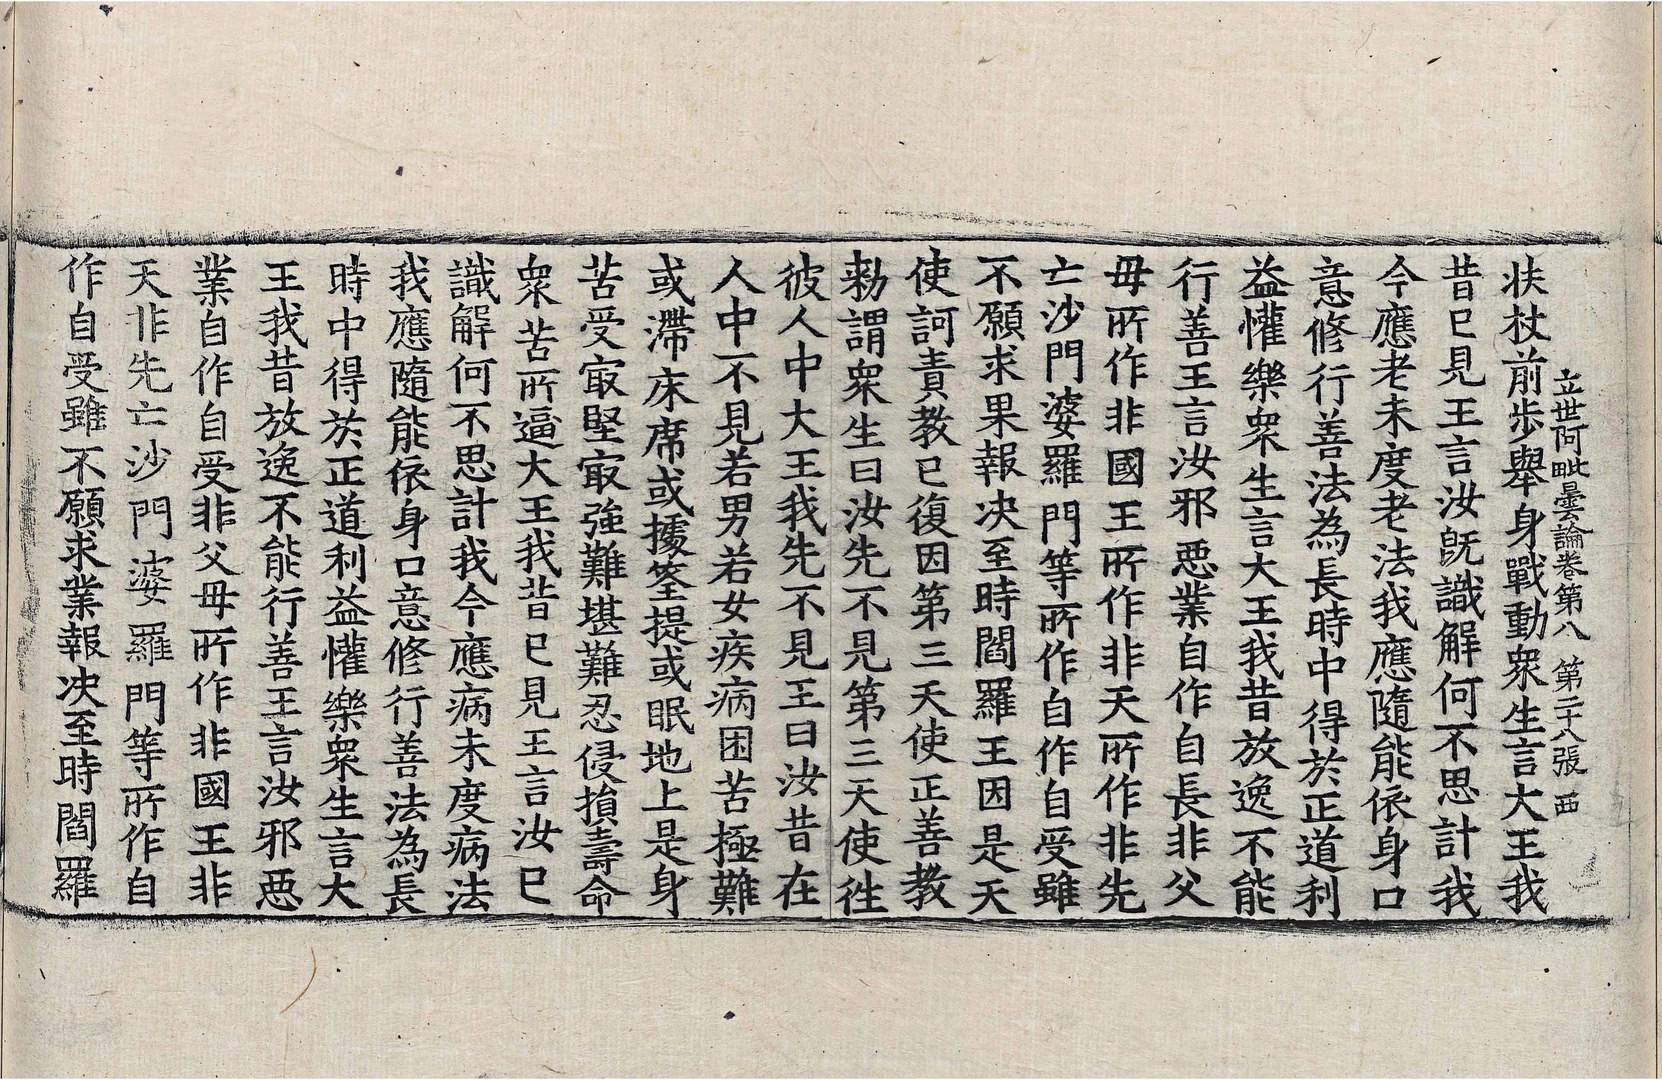 立世阿毗曇論卷第八 第二十八張 西
扶杖前歩舉身戰動衆生言大王我
昔已見王言汝旣識解何不思計我
今應老未度老法我應隨能依身口
意修行善法為長時中得於正道利
益懽樂衆生言大王我昔放逸不能
行善王言汝邪惡業自作自長非父
母所作非國王所作非天所作非先
亡沙門婆羅門等所作自作自受雖
不願求果報决至時閻羅王因是天
使訶責教已復因第三天使正善教
勑謂衆生曰汝先不見第三天使徃
彼人中大王我先不見王曰汝昔在
人中不見若男若女疾病困苦極難
或滯床席或據筌提或眠地上是身
苦受㝡堅㝡強難堪難忍侵損壽命
衆苦所逼大王我昔已見王言汝已
識解何不思計我今應病未度病法
我應隨能依身口意修行善法為長
時中得於正道利益懽樂衆生言大
王我昔放逸不能行善王言汝邪惡
業自作自受非父母所作非國王非
天非先亡沙門婆羅門等所作自
作自受雖不願求業報决至時閻羅